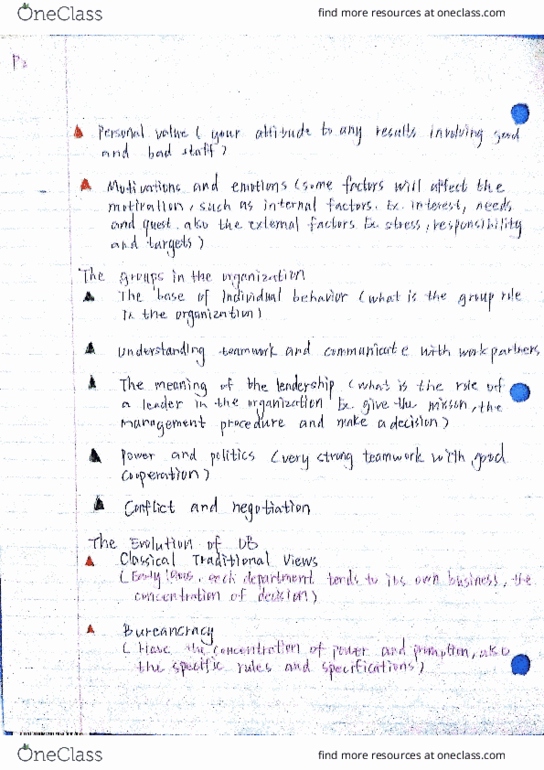 OneClass
find more resources at oneclass.com
P2
Personal value ( your attitude to any results involving good
and bad staff )
Motivations and emotions (some factors will affect the
motivation, such as internal factors. Ex. interest, needs
and quest. also the external factors Ex. stress, responsibility
and targets )
The groups in the organization
The base of Individual behavior (what is the group role
in the organization)
Understanding teamwork and communicate with workpartners
The meaning of the leadership (what is the role of
a leader in the organization Ex. give the mission, the
management procedure and make a decision)
Power and politics (very strong teamwork with good
cooperation)
Conflict and negotiation
The Evolution of OB
Classical Traditional Views
(Early, each department tends to its own business, the
concentration of decision)
Bureancracy
( Have the concentration of power and promption, also
the specific rules and specifications)
OneClass
find more resources at oneclass.com